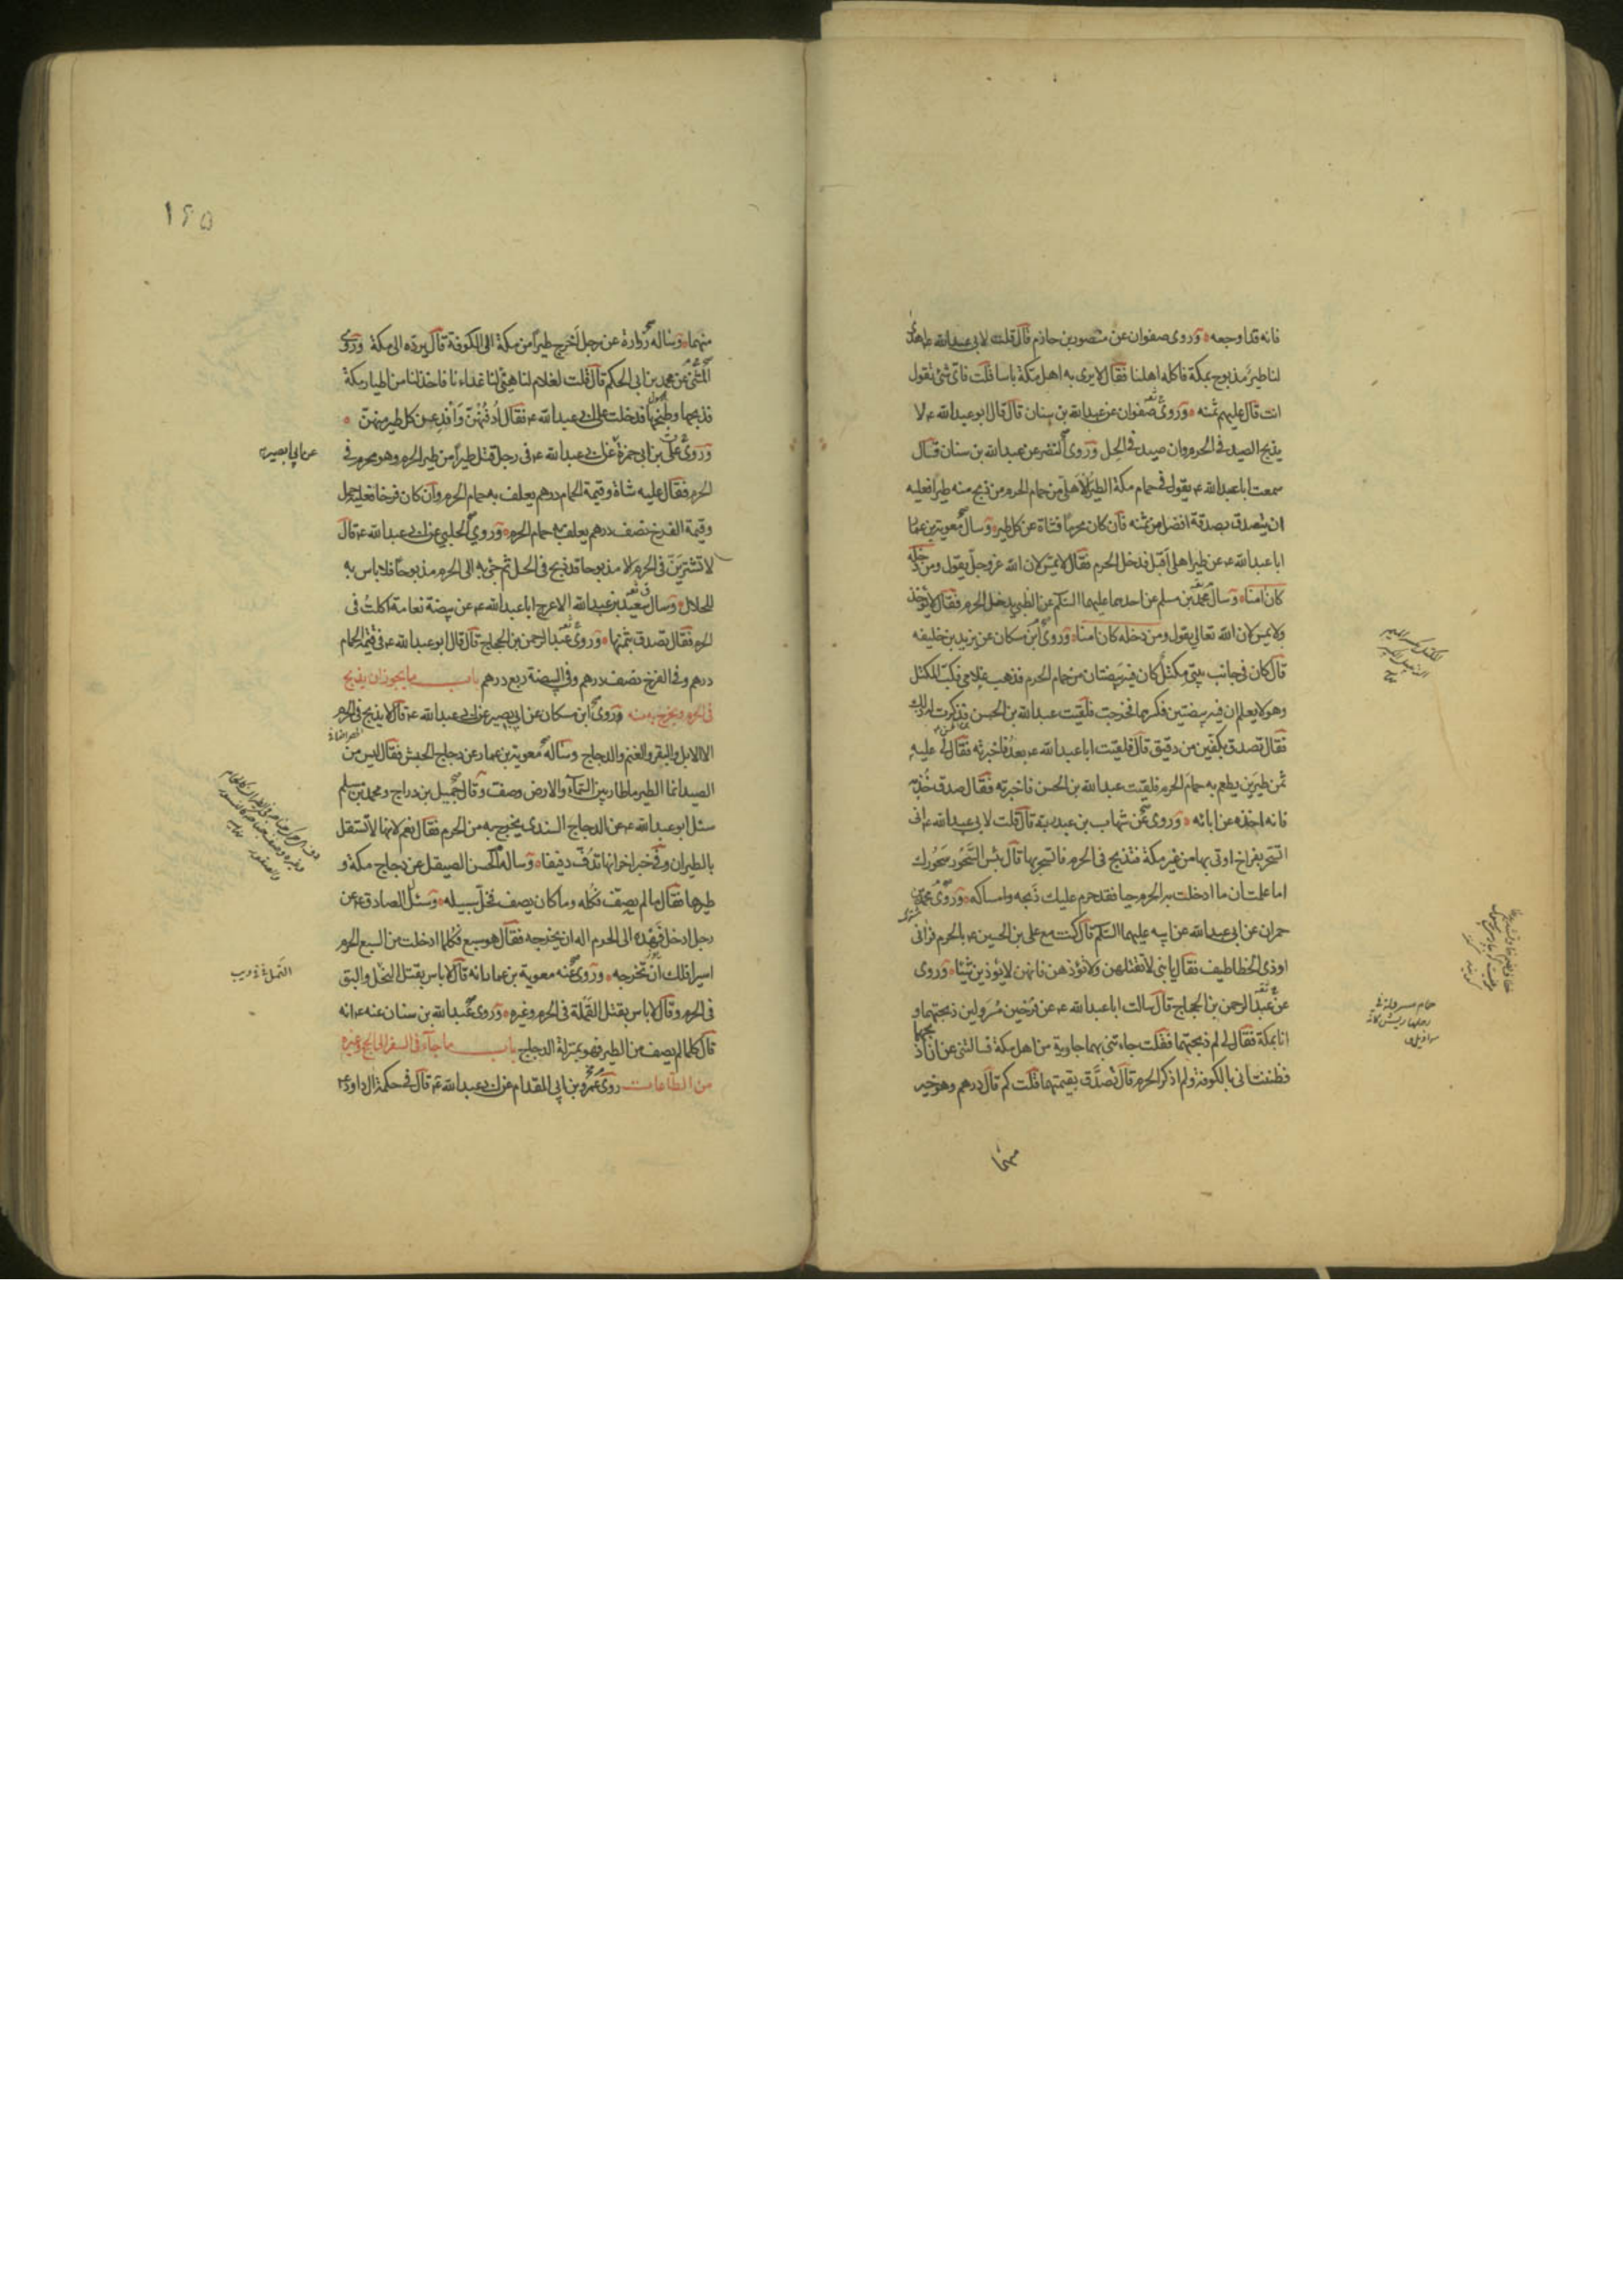 فانه قد اوجعه وروى صفوان عن منصور بن حازم قال قلت لابى عبد الله ع اهدى
لنا طير مذبوح بمكة فاكله اهلنا فقال لا يرى به اهل مكة باسا قلت فاى شئ تقول
انت قال عليهم ثمنه وروى صفوان عن عبد الله بن سنان قال قال ابو عبد الله ع لا
يذبح الصيد فى الحرم وان صيد فى الحل وروى النضر عن عبد الله بن سنان قال
سمعت ابا عبد الله ع يقول فى حمام مكة الطير الاهلى من حمام الحرم من ذبح منه طيرا فعليه
ان يتصدق بصدقة افضل من ثمنه فان كان محرما فشاة عن كل طير وسال معوية بن عمار
ابا عبد الله ع عن طير اهلى اقبل فدخل الحرم فقال لا يمس لان الله عز وجل يقول ومن دخله
كان امنا وسال محمد بن مسلم عن احدهما عليهما السلم عن الظبى يدخل الحرم فقال لا يؤخذ
ولا يمس لان الله تعالى يقول ومن دخله كان امنا وروى ابن مسكان عن يزيد بن خليفه
قال كان فى جانب بيتى مكتل كان فيه بيضتان من حمام الحرم فذهب غلامى فكب المكتل
وهو لا يعلم ان فيه بيضتين فكسرهما فخرجت فلقيت عبد الله بن الحسن فذكرت له ذلك
فقال تصدق بكفين من دقيق قال فلقيت ابا عبد الله ع بعد فاخبرته فقال لى عليه
ثمن طيرين يطعم به حمام الحرم فلقيت عبد الله بن الحسن فاخبرته فقال صدق خذ به
فانه اخذه عن ابائه وروى عن شهاب بن عبد ربه قال قلت لابى عبد الله ع انى
اتسحر بفراخ اوتى بها من غير مكة فتذبح فى الحرم فاتسحر بها قال بئس السحور سحورك
اما علمت ان ما ادخلت به الحرم حيا فقد حرم عليك ذبحه وامساكه وروى محمد بن
حمران عن ابى عبد الله عن ابيه عليهما السلم قال كنت مع على بن الحسين ع بالحرم فرانى
اوذى الخطاطيف فقال يا بنى لا تقتلهن ولا تؤذهن فانهن لا يؤذين شيئا وروى
عن عبد الرحمن بن الحجاج قال سالت ابا عبد الله ع عن فرخين مسرولين ذبحتهما و
انا بمكة فقال لى لم ذبحتهما فقلت جاءتنى بهما جارية من اهل مكة فسالتنى عن ان اذبحها
فظننت انى بالكوفة ولم اذكر الحرم قال تصدق بقيمتهما قلت كم قال درهم وهو خير
منها
١٦٥
منهما وساله زرارة عن رجل اخرج طيرا من مكة الى الكوفة قال يرده الى مكة وروى
المثنى عن محمد بن ابى الحكم قال قلت لغلام لنا هيئ لنا غداءنا فاخذ لنا من اطيار مكة
فذبحها وطبخها فدخلت على ابى عبد الله ع فقال ادفنهن وافد عن كل طير منهن
وروى على بن ابى حمزة عن ابى عبد الله ع فى رجل قتل طيرا من طير الحرم وهو محرم فى
عن ابى بصير
الحرم فقال عليه شاة وقيمة الحمام درهم يعلف به حمام الحرم وان كان فرخا فعليه حمل
وقيمة الفرخ نصف درهم يعلف به حمام الحرم وروى الحلبى عن ابى عبد الله ع قال
لا تشترين فى الحرم الا مذبوحا قد ذبح فى الحل ثم جئ به الى الحرم مذبوحا فلا باس به
للحلال وسال سعيد بن عبد الله الاعرج ابا عبد الله ع عن بيضة نعامة اكلت فى
الحرم فقال تصدق بثمنها وروى عبد الرحمن بن الحجاج قال قال ابو عبد الله ع فى قيمة الحمام
درهم وفى الفرخ نصف درهم وفى البيضة ربع درهم باب ما يجوز ان يذبح
فى الحرم ويخرج به منه وروى ابن مسكان عن ابى بصير عن ابى عبد الله ع قال لا يذبح فى الحرم
الا الابل والبقر والغنم والدجاج وساله معوية بن عمار عن دجاج الحبش فقال ليس من
الصيد انما الطير ما طار بين السماء والارض وصف وقال جميل بن دراج ومحمد بن مسلم
سئل ابو عبد الله ع عن الدجاج السندى يخرج به من الحرم فقال نعم لانها لا تستقل
بالطيران وفى خبر اخر انها تدف دفيفا وساله الحسن الصيقل عن دجاج مكة و
طيرها فقال ما لم يصف فكله وما كان يصف فخل سبيله وسئل الصادق ع عن
رجل ادخل فهده الى الحرم اله ان يخرجه فقال هو سبع فكلما ادخلت من السبع الحرم
اسيرا فلك ان تخرجه وروى عنه معوية بن عمار انه قال لا باس بقتل النحل والبق
فى الحرم وقال لا باس بقتل القملة فى الحرم وغيره وروى عبد الله بن سنان عنه ع انه
قال كلما لم يصف من الطير فهو بمنزلة الدجاج باب ما جاء فى السفر الى الحج وغيره
من الطاعات روى عمرو بن ابى المقدام عن ابى عبد الله ع قال فى حكمة ال داود ع